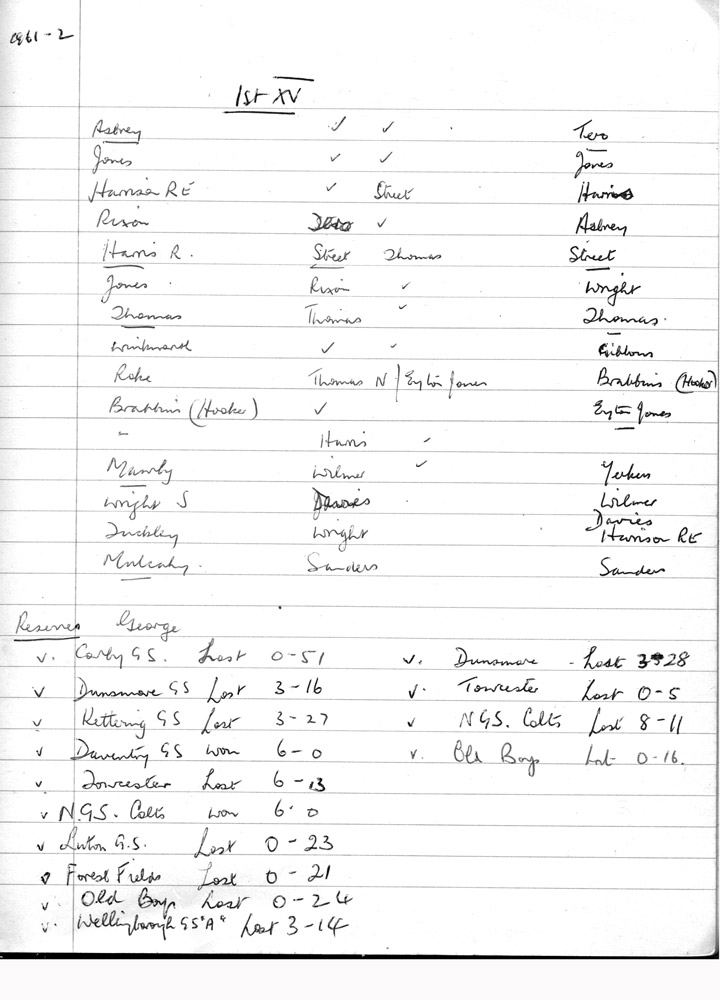 1961-2
1st XV
Asbrey ✓ ✓ Tero
Jones ✓ ✓ Jones
Harrison RE ✓ Street Harris
Rixon ✓ Asbrey
Harris R. Street Thomas Street
Jones Rixon ✓ Wright
Thomas Thomas ✓ Thomas.
✓ ✓ Gibbons
Roke Thomas N / Eyton Jones Brabbins (Hooker)
Brabbins (Hooker) ✓ Eyton Jones
" Harris ✓
Mawby Wilmer ✓
Wright S Davies Wilmer
Davies
Tuckley Wright Harrison RE
Mulcahy. Sanders Sanders
Reserves George
v. Corby GS. Lost 0-51 v. Dunsmore - Lost 3-28
v Dunsmore GS Lost 3-16 v. Towcester Lost 0-5
v Kettering GS Lost 3-27 v NGS. Colts Lost 8-11
v Daventry GS won 6-0 v. Old Boys Lost 0-16.
v. Towcester Lost 6-13
v N.G.S. Colts won 6-0
v Luton G.S. Lost 0-23
v Forest Fields Lost 0-21
v. Old Boys Lost 0-24
v. Wellingborough GS "A" Lost 3-14